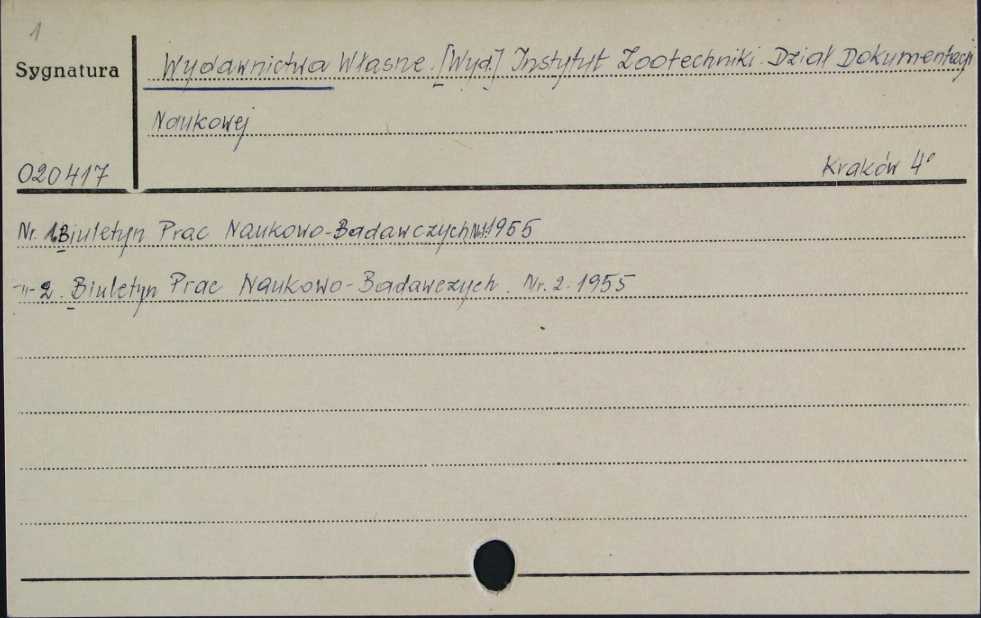 1
Sygnatura
Wydawnictwa Własne. [Wyd.] Instytut Zootechniki. Dział Dokumentacji
Naukowej
020417
Kraków 4°
Nr. 1. Biuletyn Prac Naukowo-Badawczych Nr.1.1955
-"- 2. Biuletyn Prac Naukowo-Badawczych. Nr. 2. 1955